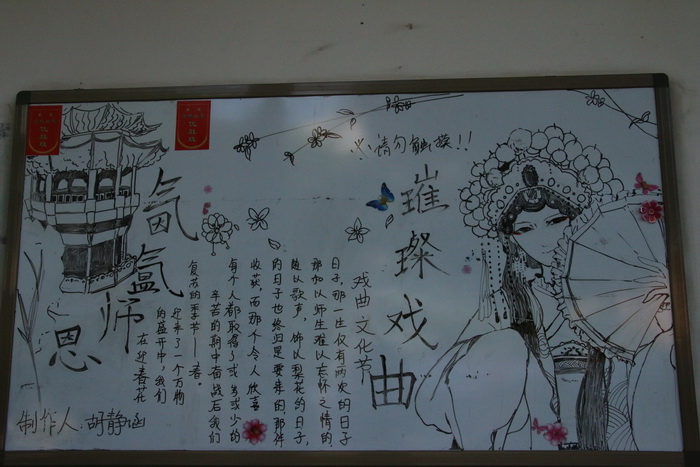 请勿触摸!!
璀璨戏曲
戏曲文化节
日子,那一生仅有两次的日子
那和以师生难以忘怀之情的,
随以歌声,饰以梨花的日子,
的日子也终归是要来的,那件
收获,而那个令人欣喜
每个人都取得了或多或少的
辛苦的期中奋战后我们
复苏的季节——春。
迎来了一个万物
的盛开中,我们
在迎春花
氤氲师恩
制作人:胡静涵